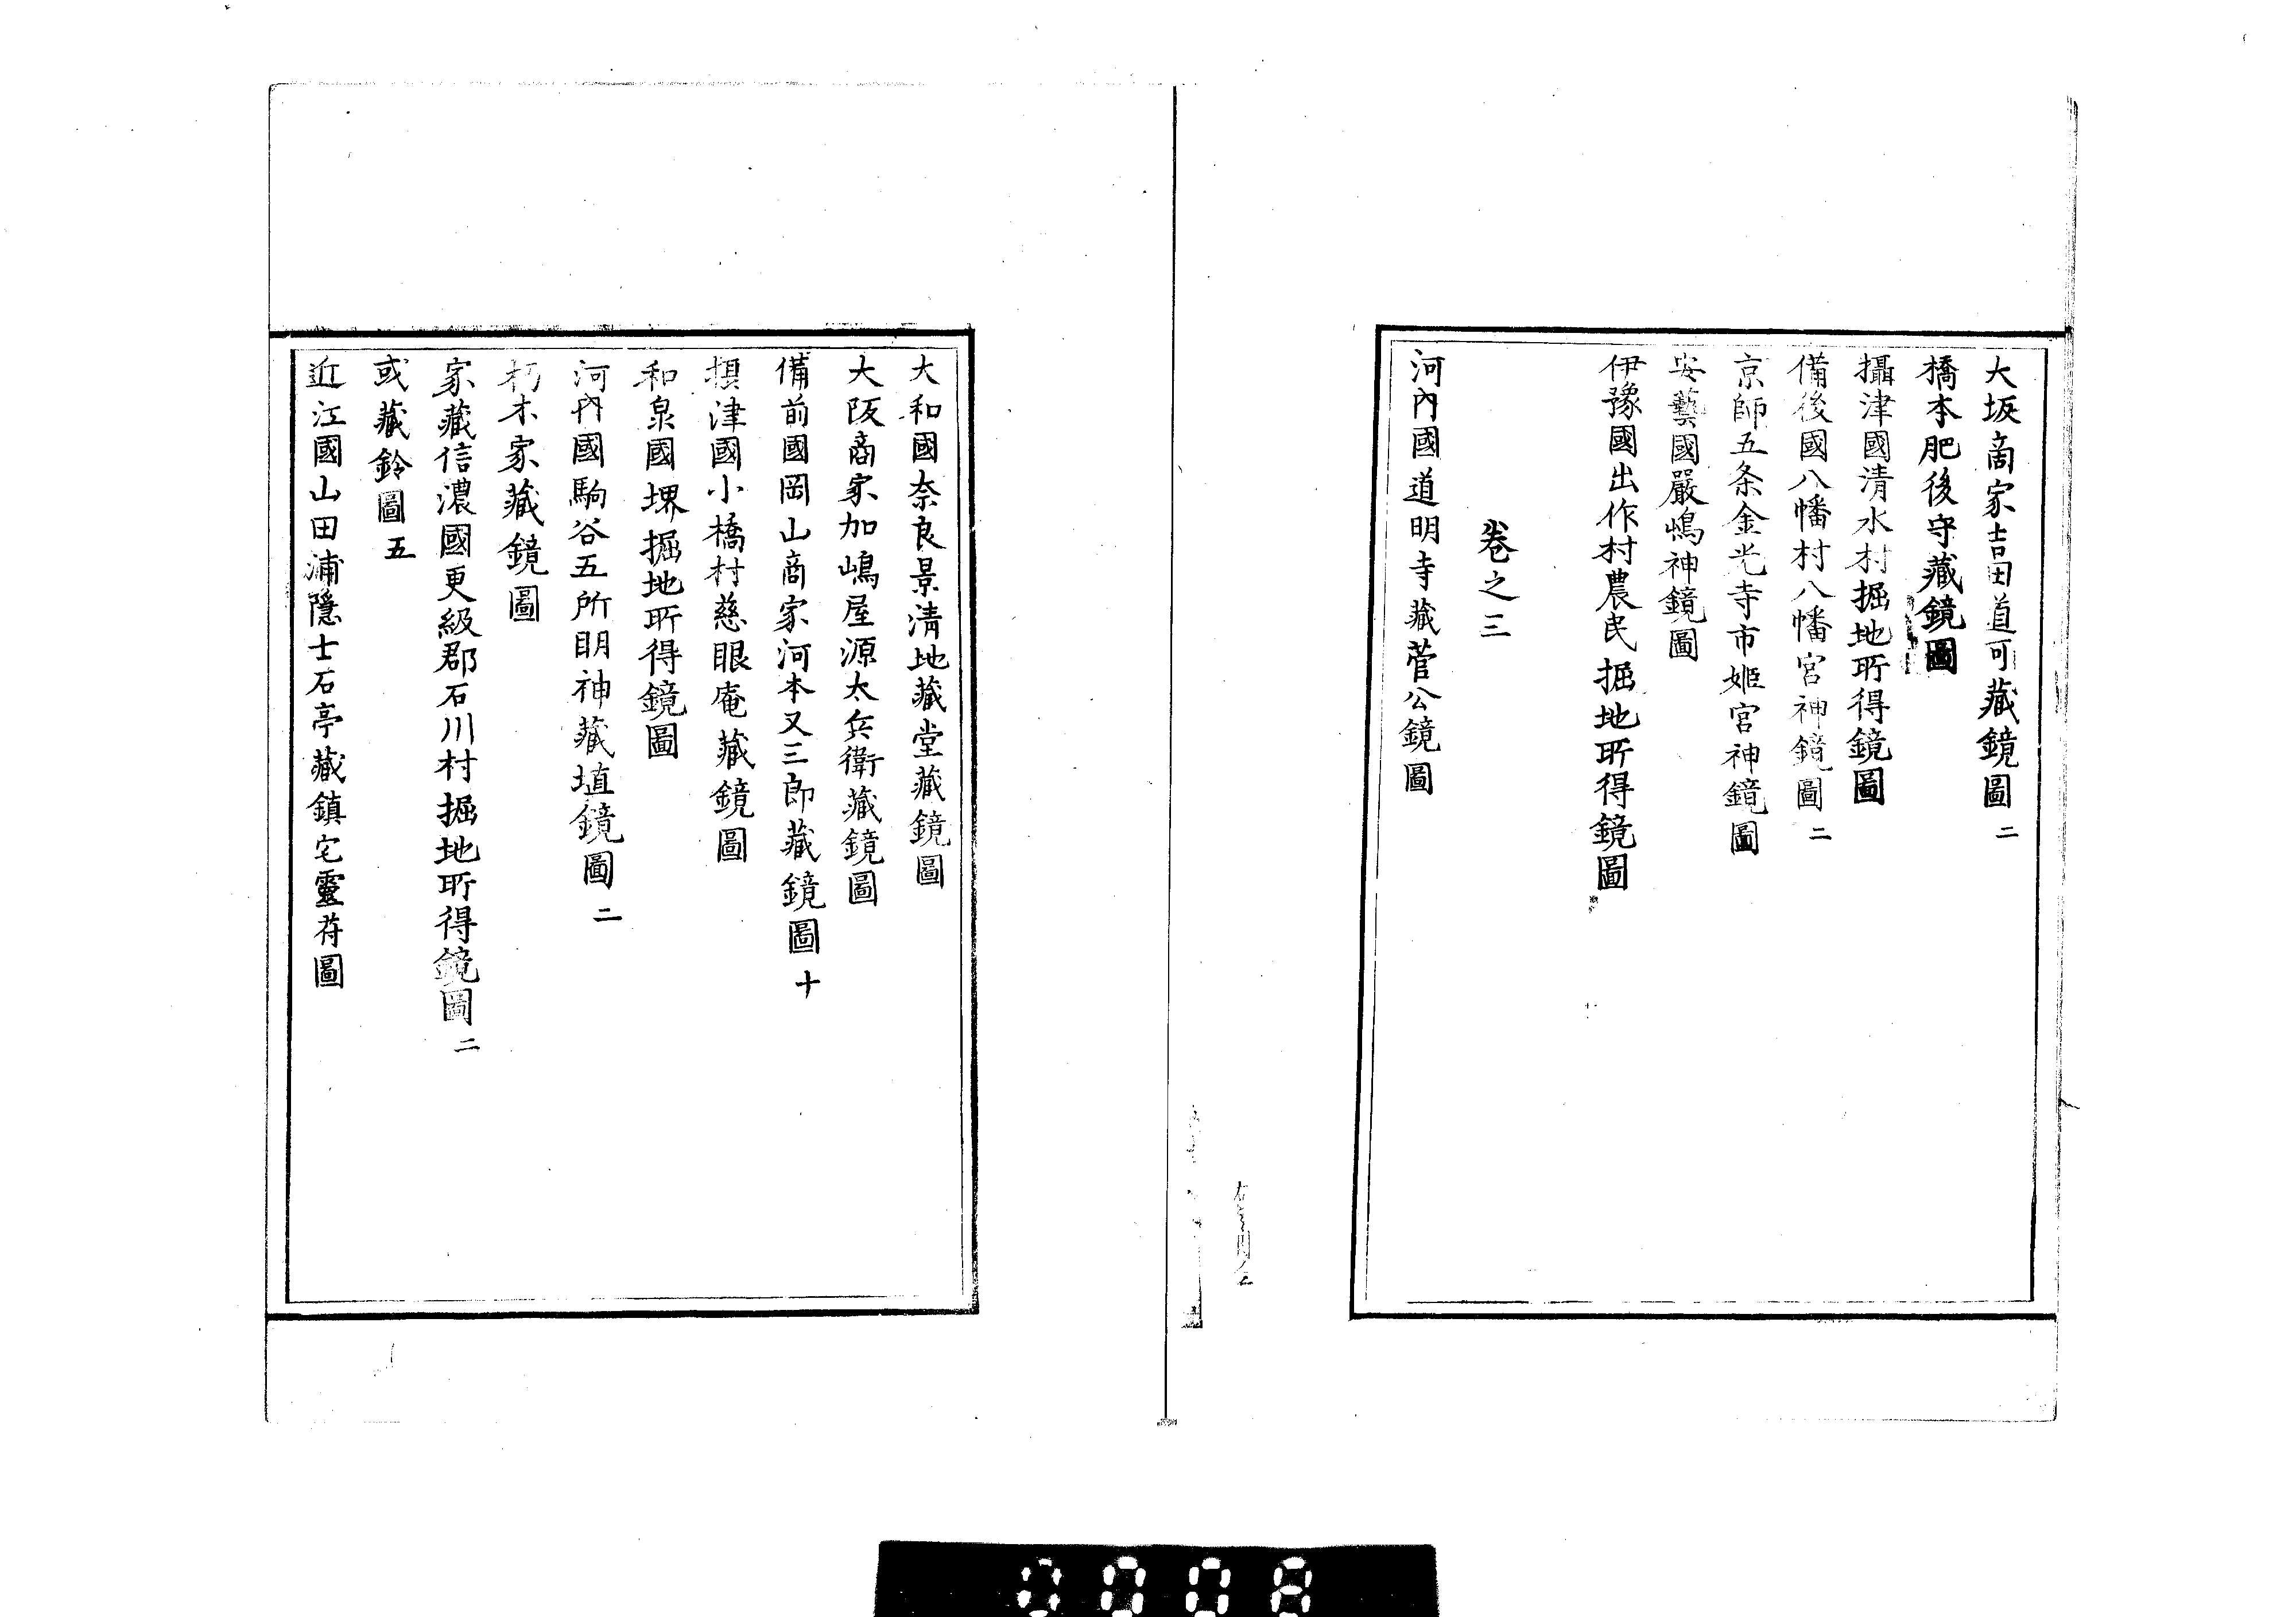 大坂商家吉田道可藏鏡圖二
橋本肥後守藏鏡圖
攝津國清水村掘地所得鏡圖
備後國八幡村八幡宮神鏡圖二
京師五条金光寺市姬宮神鏡圖
安藝國嚴嶋神鏡圖
伊豫國出作村農民掘地所得鏡圖
卷之三
河內國道明寺藏菅公鏡圖
大和國奈良景清地藏堂藏鏡圖
大阪商家加嶋屋源太兵衛藏鏡圖
備前國岡山商家河本又三郎藏鏡圖十
摂津國小橋村慈眼庵藏鏡圖
和泉國堺掘地所得鏡圖
河內國駒谷五所明神藏埴鏡圖二
朽木家藏鏡圖
家藏信濃國更級郡石川村掘地所得鏡圖二
或藏鈴圖五
近江國山田浦隱士石亭藏鎮宅靈苻圖